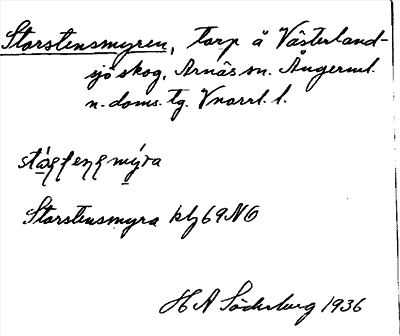 Storstensmyren, torp å Västerland-
sjö skog, Arnäs sn. Ångerml.
n. doms. tg. Vnorrl. l.
Storstensmyra klj 69 NO
H A Söderberg 1936